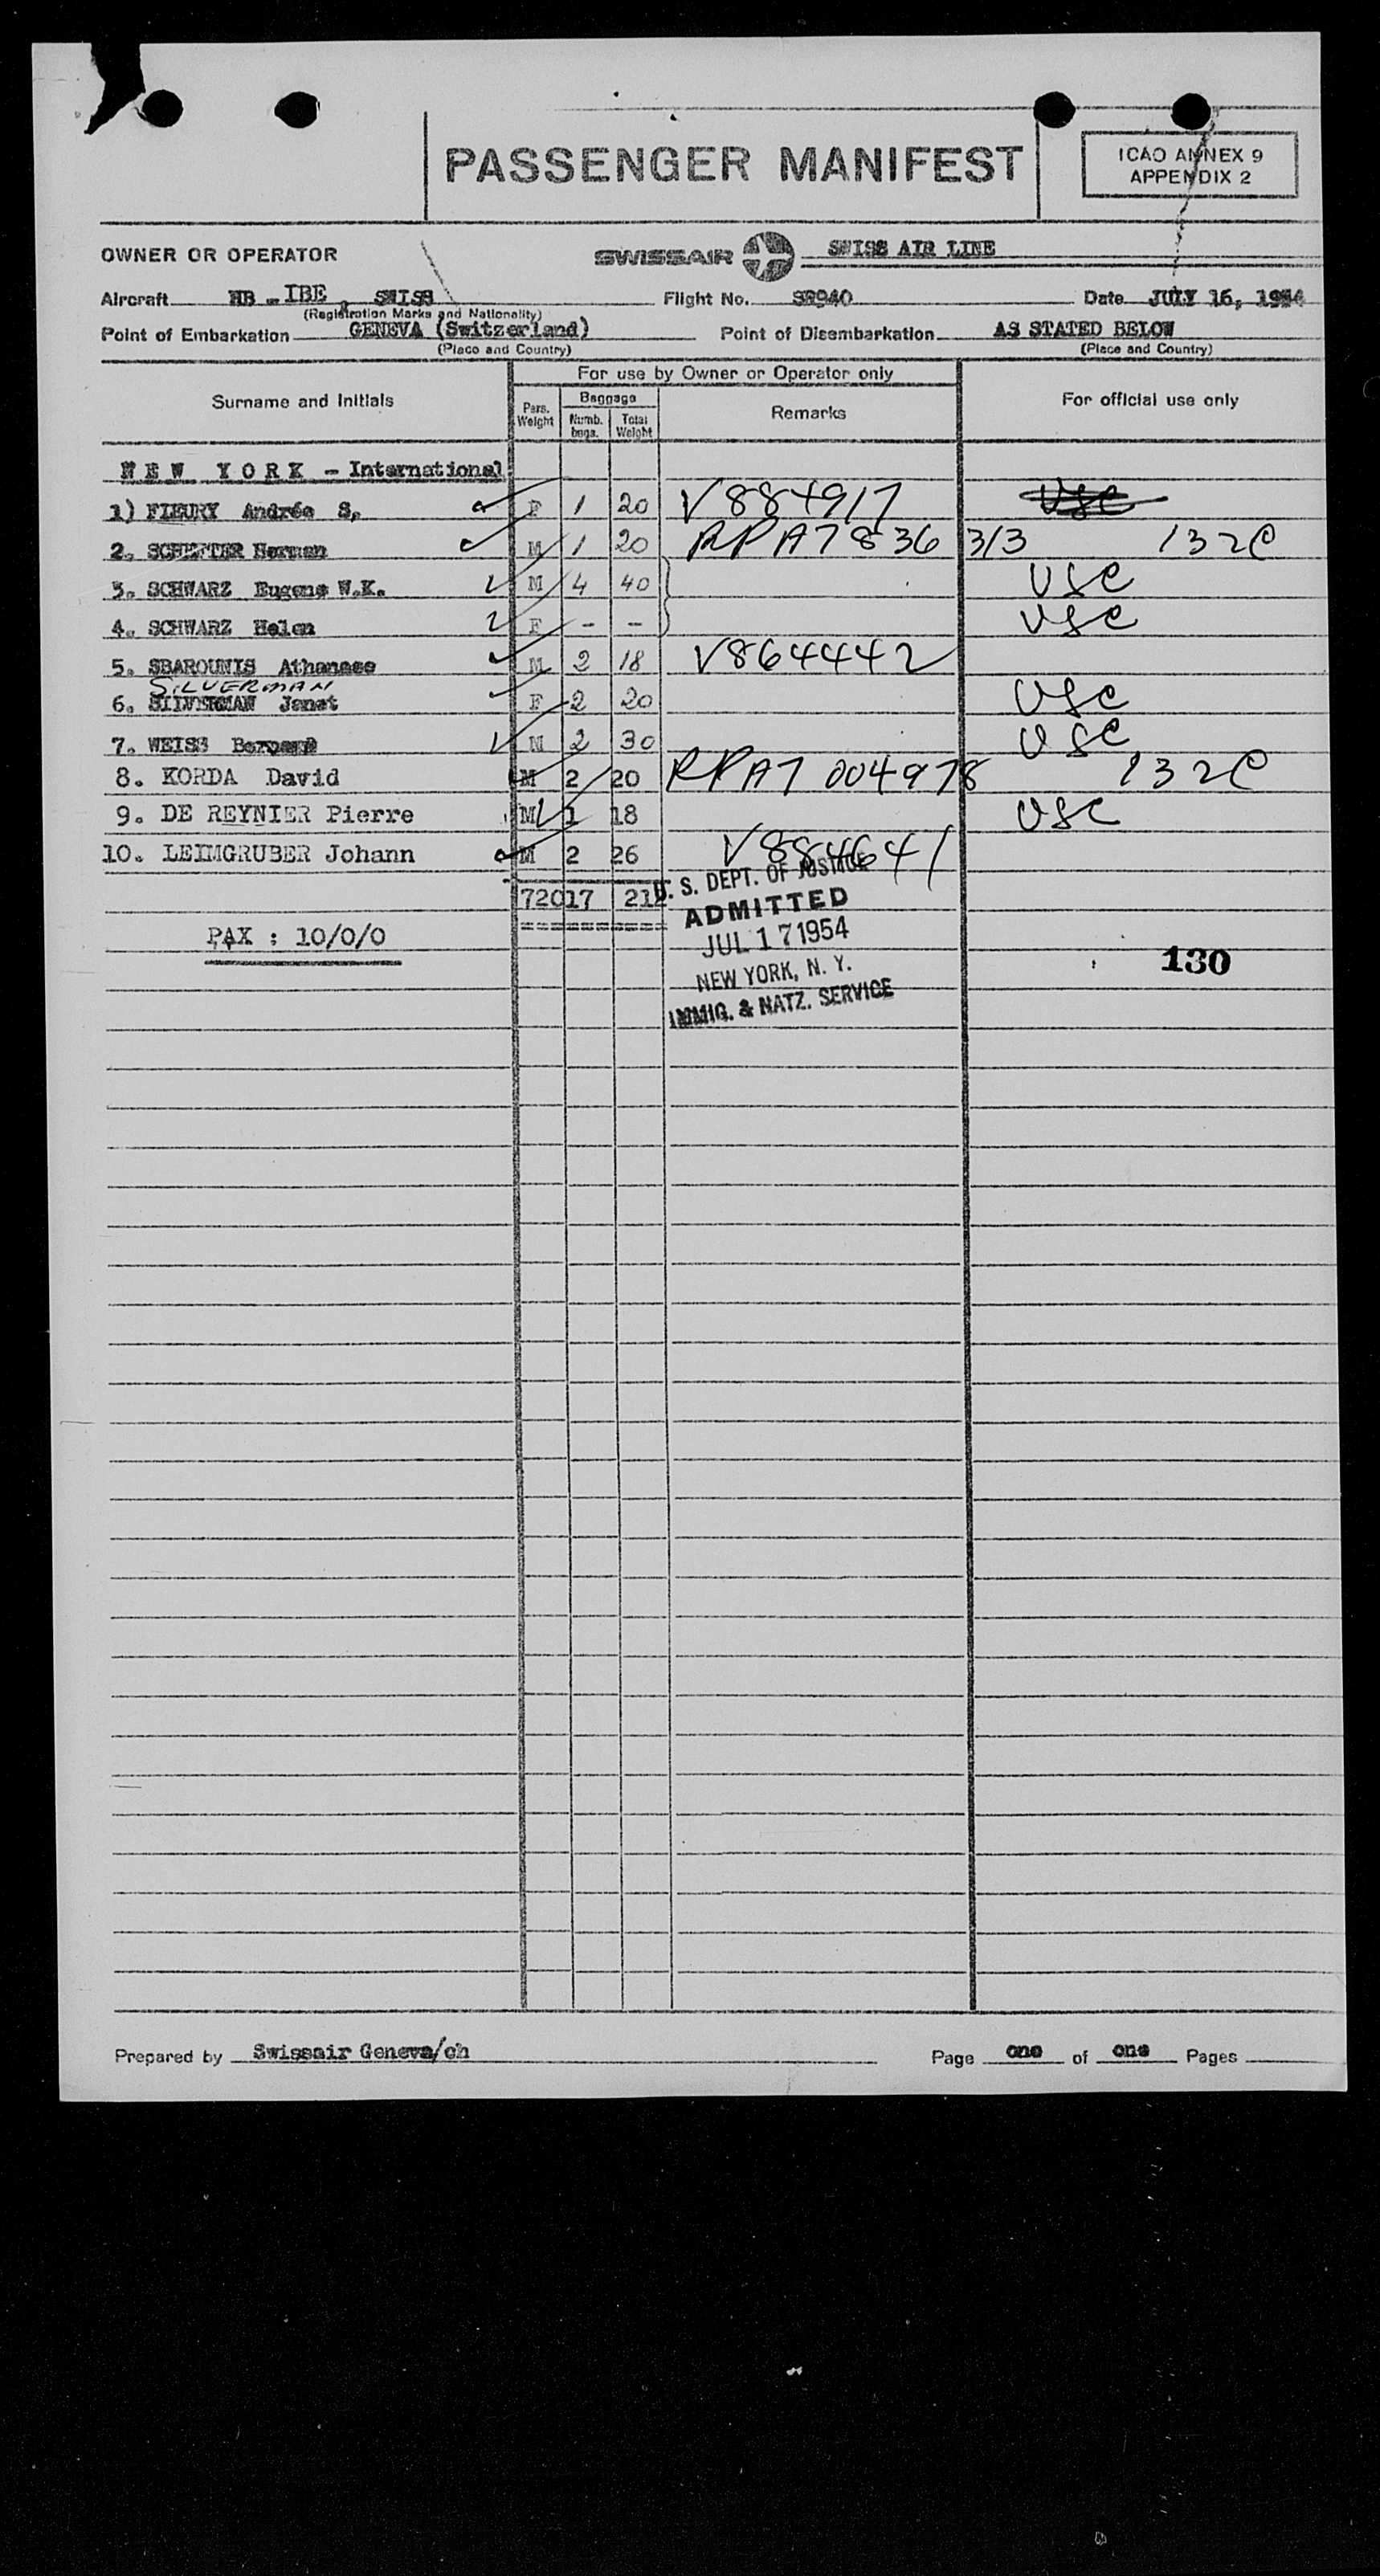 PASSENGER MANIFEST
ICAO ANNEX 9
APPENDIX 2
OWNER OR OPERATOR SWISSAIR SWISS AIR LINE
Aircraft HB - IBE, SWISS Flight No. SR940 Date JULY 16, 1954
(Registration Marks and Nationality)
Point of Embarkation GENEVA (Switzerland) Point of Disembarkation AS STATED BELOW
(Place and Country) (Place and Country)
For use by Owner or Operator only
Surname and Initials Pers. Weight Baggage Numb. bags. Total Weight Remarks For official use only
NEW YORK - International
1) FLEURY Andrée S. F 1 20 V884917 USC
2. Herman M 1 20 RPA7836 313 132C
3. SCHWARZ Eugene W.K. M 4 40 USC
4. SCHWARZ Helen F - - USC
5. SBAROUNIS Athanase M 2 18 V864442
SILVERMAN
6. SILVERMAN Janet F 2 20 USC
7. WEISS Bernard M 2 30 USC
8. KORDA David M 2 20 RPA7 004978 132C
9. DE REYNIER Pierre M 1 18 USC
10. LEIMGRUBER Johann M 2 26 V884641
720 17 212
U. S. DEPT. OF JUSTICE
ADMITTED
JUL 17 1954
NEW YORK, N. Y.
IMMIG. & NATZ. SERVICE
PAX : 10/0/0
130
Prepared by Swissair Geneva/ch Page one of one Pages